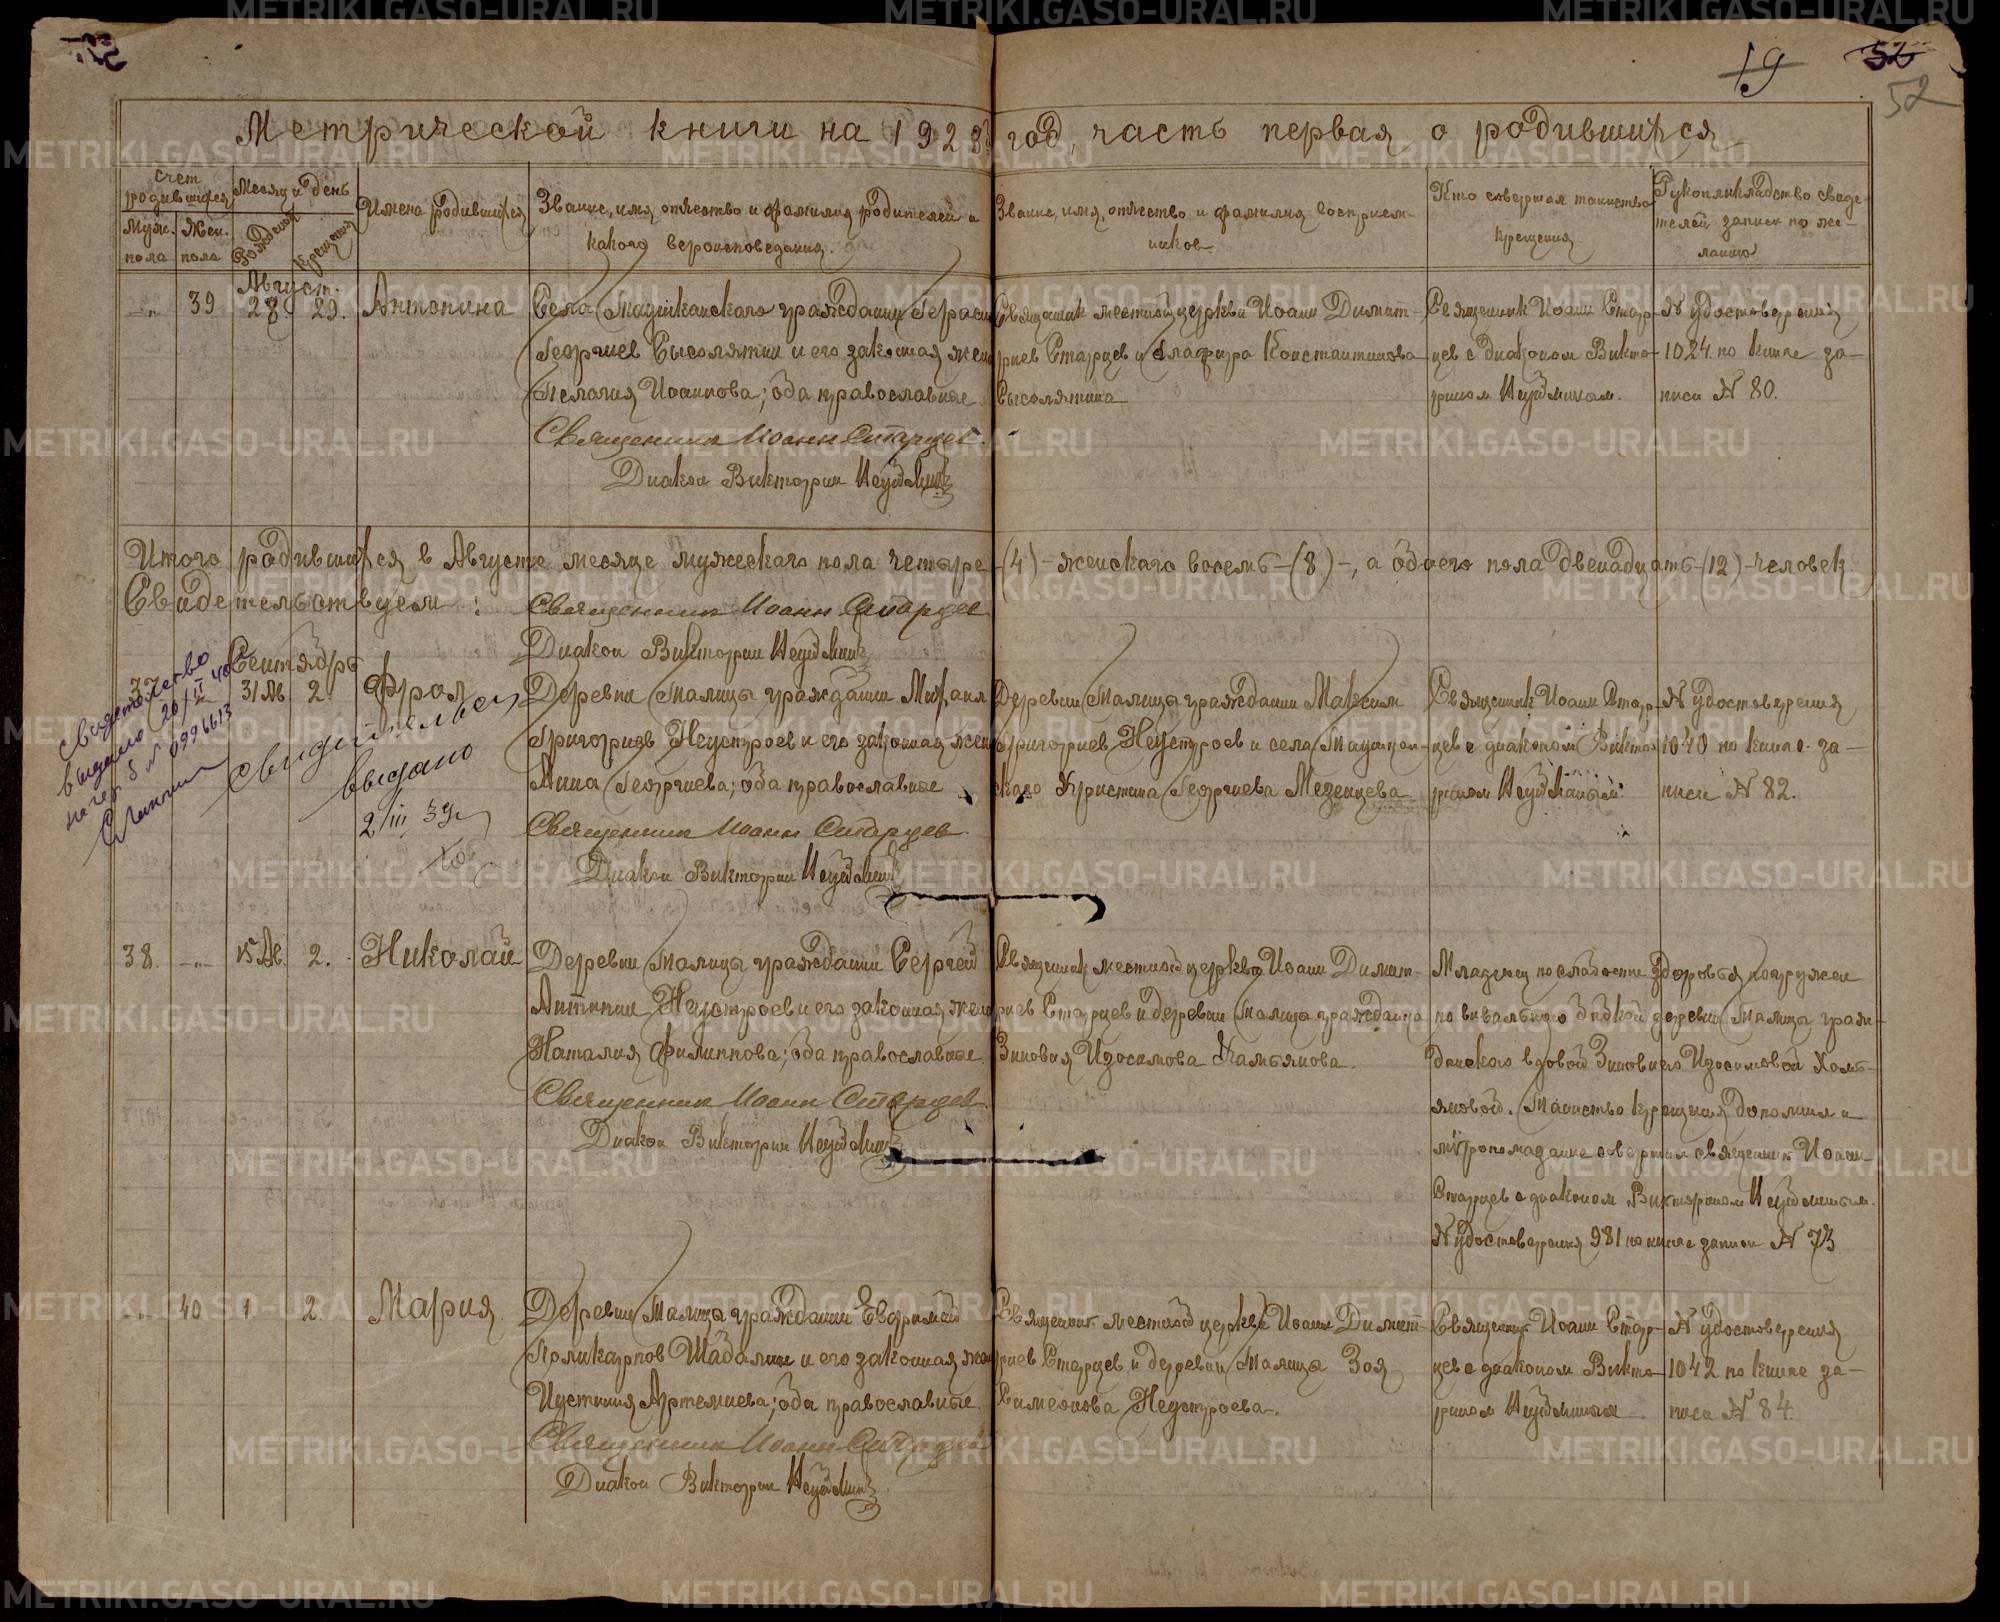 19
52
52
Метрической книги на 1923 год, часть первая о родившихся
счет родившихся
Месяц и день
Муж. пола
Жен. пола
Рождения
Крещения
Имена родившихся
Звание, имя, отчество и фамилия родителей и
какого вероисповедания.
Звание, имя, отчество и фамилия восприем-
ников
Кто совершал таинство
крещения
Рукоприкладство свиде-
телей записи по же-
ланию
Август.
39 28. 29. Антонина
Села Ташкинского гражданин Герасим
Георгиев Сысолятин и его законная жена
Пелагия Иоаннова; оба православные
Священник Иоанн Старцев.
Диакон Викторин Неуймин
Священник местной церкви Иоанн Димит-
риев Старцев и Глафира Константинова
Сысолятина
Священник Иоанн Стар-
цев с диаконом Викто-
рином Неуйминым.
№ удостоверения
1024 по книге за-
писи № 80.
Итого родившихся в Августе месяце мужеского пола четыре -(4)- женского восемь -(8)-, а обоего пола двенадцать -(12)- человек.
Свидетельствуем: Священник Иоанн Старцев
Диакон Викторин Неуймин
Сентябрь
37 31 Ав. 2. Фрол
свидетельство
выдано 20/II 40
0996613
свидетельство
выдано
2/III 39
Деревни Талицы гражданин Михаил
Григориев Неустроев и его законная жена
Анна Георгиева; оба православные
Священник Иоанн Старцев.
Диакон Викторин Неуймин
Деревни Талицы гражданин Максим
Григориев Неустроев и села Ташкин-
ского Христина Георгиева Мезенцева
Священник Иоанн Стар-
цев с диаконом Викто-
рином Неуйминым
№ удостоверения
1040 по книге за-
писи № 82.
38. 15 Ав. 2. Николай
Деревни Талицы гражданин Сергей
Антипин Неустроев и его законная жена
Наталия Филиппова; оба православные.
Священник Иоанн Старцев.
Диакон Викторин Неуймин
Священник местной церкви Иоанн Димит-
риев Старцев и деревни Талицы гражданка
Зиновия Изосимова Хамьянова.
Младенец по слабости здоровья погружен
повивальною бабкой деревни Талицы граж-
данского вдовой Зиновиею Изосимовой Хамь-
яновой. Таинство крещения дополнил и
миропомазание совершил священник Иоанн
Старцев с диаконом Викторином Неуйминым.
№ удостоверения 981 по книге записи № 73
40 1. 2. Мария
Деревни Талицы гражданин Евфимий
Поликарпов Шадалин и его законная жена
Иустиния Артемиева; оба православные.
Священник Иоанн Старцев
Диакон Викторин Неуймин
Священник местной церкви Иоанн Димит-
риев Старцев и деревни Талицы Зоя
Симеонова Неустроева.
Священник Иоанн Стар-
цев с диаконом Викто-
рином Неуйминым
№ удостоверения
1042 по книге за-
писи № 84.
METRIKI.GASO-URAL.RU